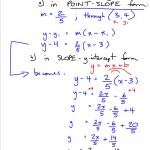 2) in POINT-SLOPE form
m = 2/5 ; through (3,4)
y - y₁ = m(x - x₁)
y - 4 = 2/5 (x - 3)
3) in SLOPE-y-intercept form
y = mx + b
becomes:
y - 4 = 2/5 (x - 3)
y - 4 = 2x/5 - 6/5
y = 2x/5 - 6/5 + 4
y = 2x/5 - 6/5 + 20/5
y = 2x/5 + 14/5
y = 2/5 x + 14/5